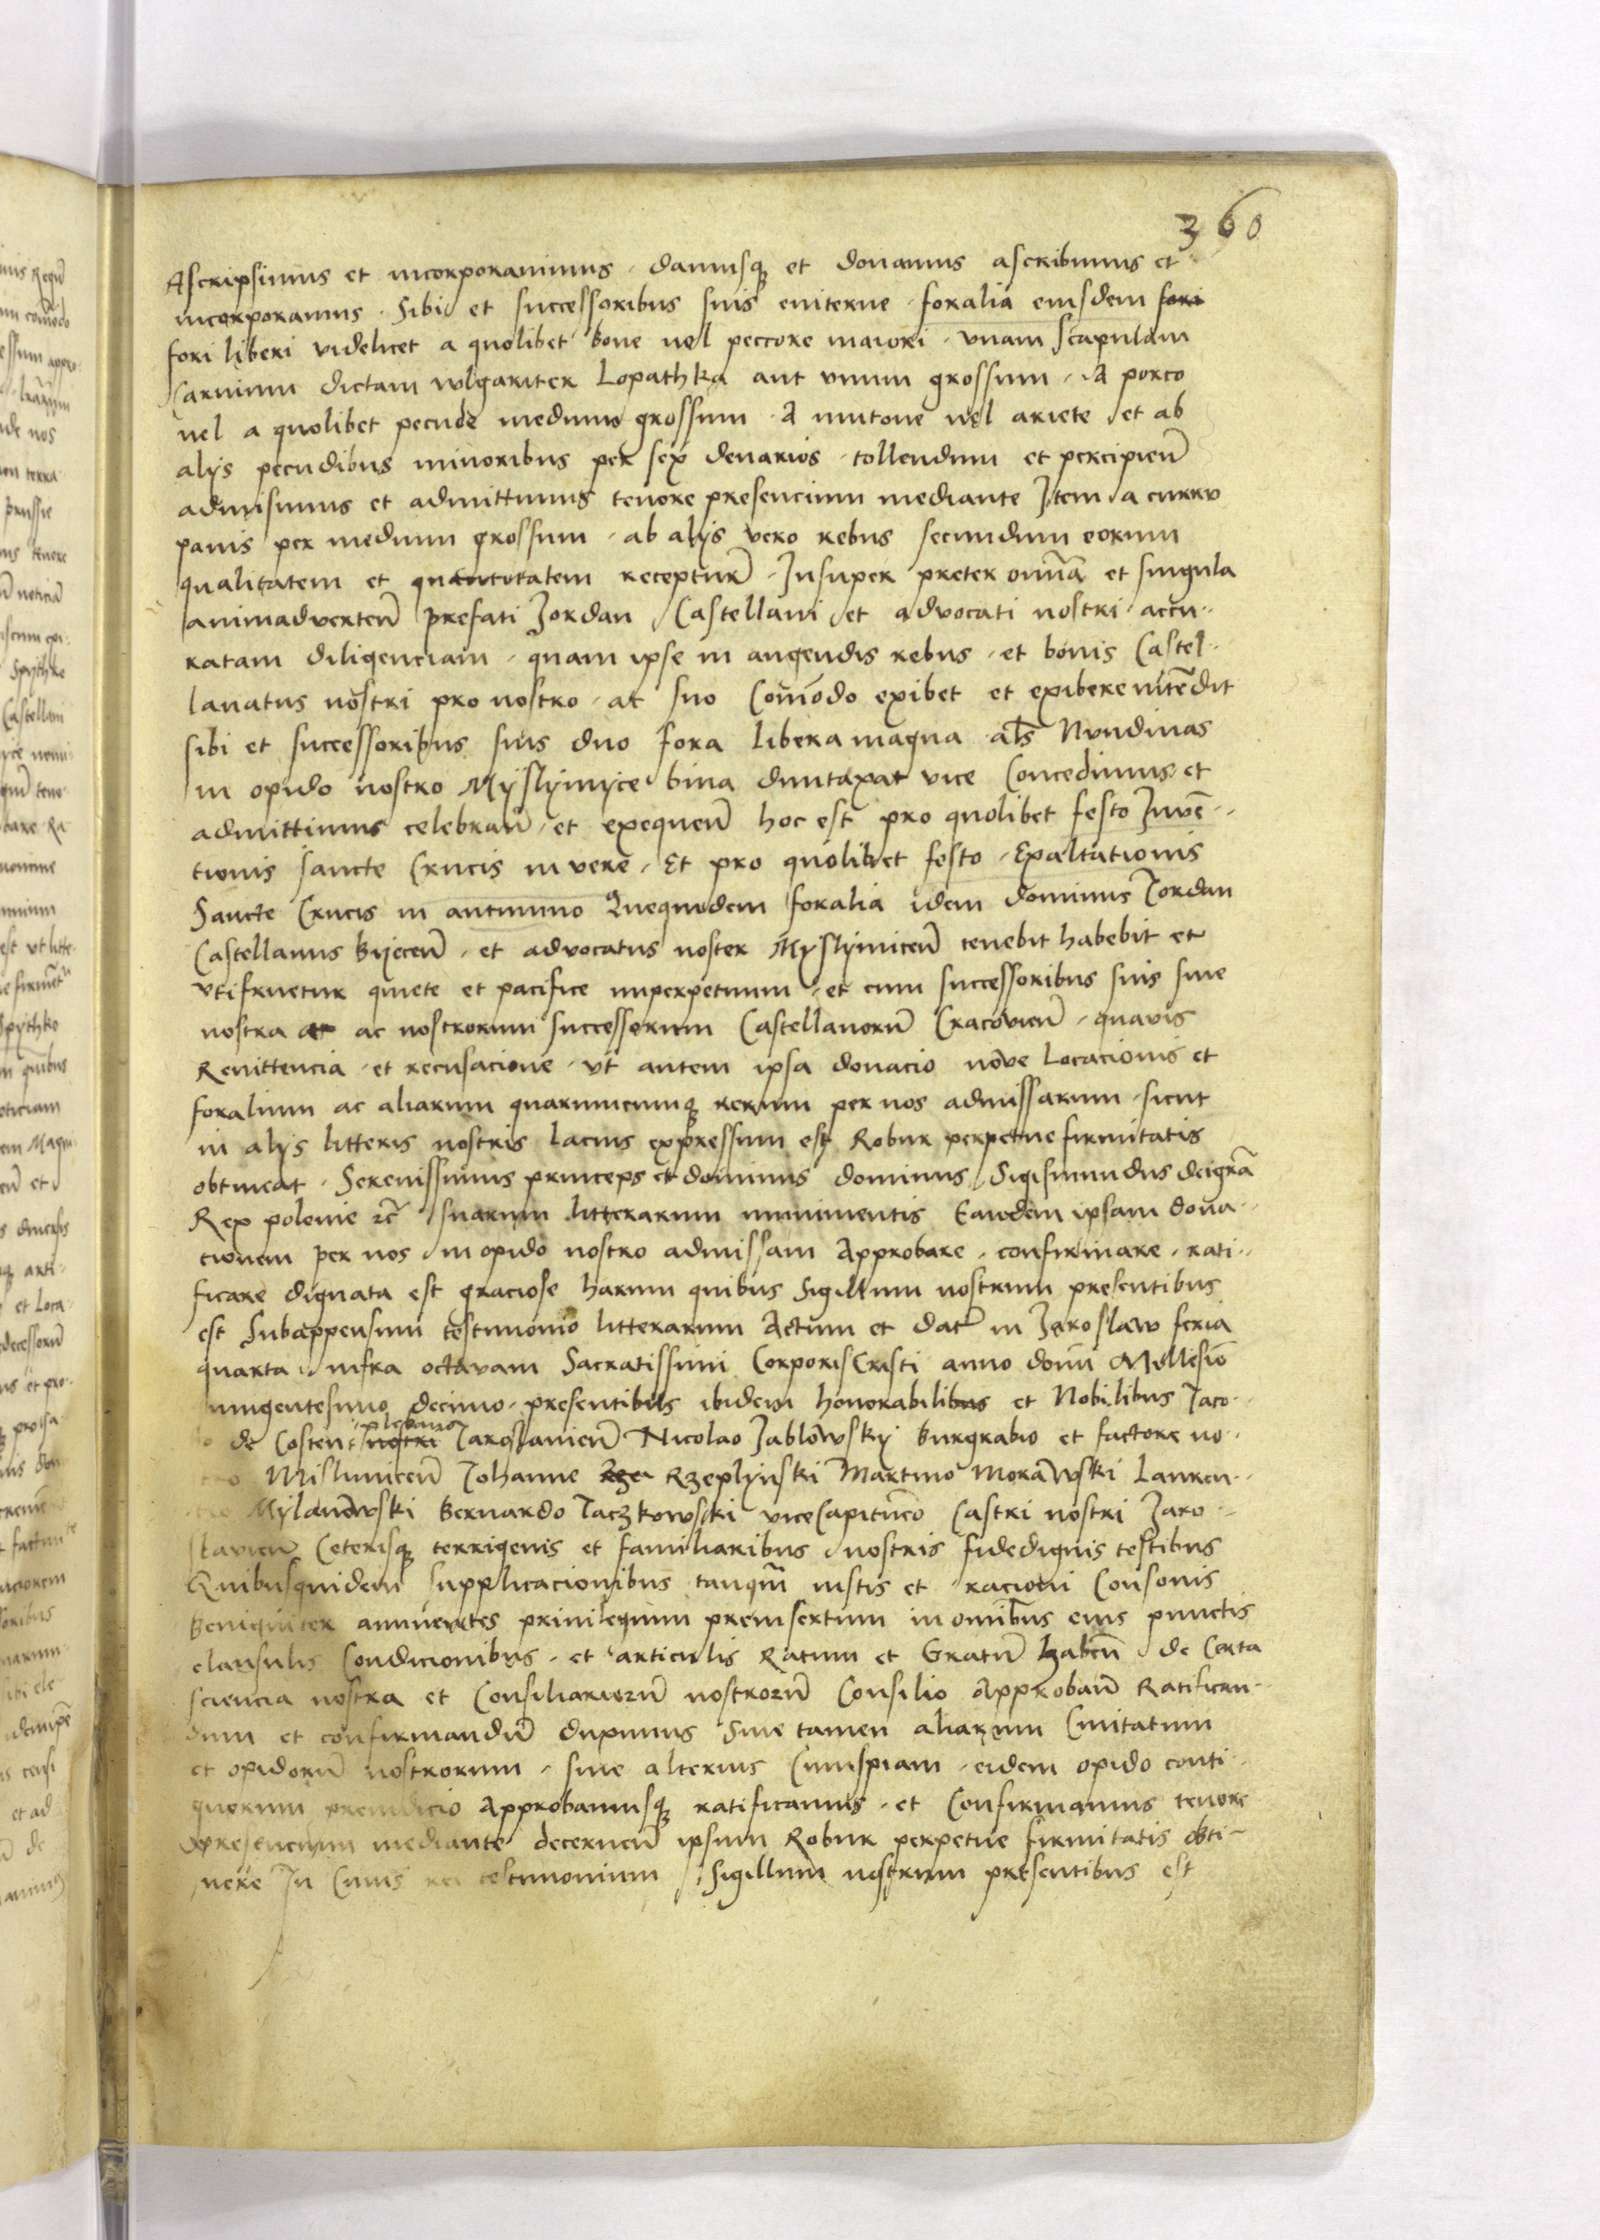 360
Ascripsimus et incorporavimus. damusq₃ et donamus ascribimus et
incorporamus. Sibi et successoribus suis eviterne. foralia eiusdem fori
fori liberi videlicet a quolibet bove vel peccore maiori. unam scapulam
Carnium dictam wlgariter Lopathka aut unum grossum. A porco
vel a quolibet pecude medium grossum. A mutone vel ariete et ab
alijs pecudibus minoribus per sex denarios. tollendum et percipien̄
admisimus et admittimus tenore presencium mediante Item a curru
panis per medium grossum. ab alijs vero rebus secundum eorum
qualitatem et quantitatem recepturū. Insuper preter om̄ia et singula
animadverten̄ prefati Jordan Castellani et advocati nostri accu-
ratam diligenciam. quam ipse in augendis rebus. et bonis Castel-
lanatus nostri pro nostro. ac suo Com̄odo exibet et exibere intēdit
sibi et successoribus suis duo fora libera magna al̄s Nundinas
in opido nostro Myslymyce bina duntaxat vice Concedimus et
admittimus celebran̄. et exequen̄ hoc est pro quolibet festo Invē-
tionis sancte Crucis in vere. Et pro quolibet festo. Exaltationis
Sancte Crucis in autumno Quequidem foralia idem dominus Jordan
Castellanus Byecen̄. et advocatus noster Myslymicen̄ tenebit habebit et
utifruetur quiete et pacifice imperpetuum. et cum successoribus suis sine
nostra at ac nostrorum successorum Castellanorū Cracovien̄. quavis
Renittencia. et recusacione. ut autem ipsa donacio nove Locacionis et
foralium ac aliarum quarumcumq₃ rerum per nos admissarum. sicut
in alijs litteris nostris lacius expressum est Robur perpetue firmitatis
obtineat. Serenissimus princeps et dominus dominus Sigismundus dei gr̄a
Rex polonie ꝛc̄ suarum litterarum munimentis Eandem ipsam dona-
cionem per nos in opido nostro admissam Approbare. confirmare. rati-
ficare dignata est graciose harum quibus Sigillum nostrum presentibus
est Subappensum testimonio litterarum Actum et dat̄ in Jaroslaw feria
quarta infra octavam Sacratissimi Corporis Cristi anno domī Millesīo
quingentesimo decimo. presentibus ibidem honorabilibus et Nobilibus Jaco-
bo de Costen nostri plebano Jaroslavien̄ Nicolao Jablowskij burgrabio et factore no-
stro Mislimicen̄ Johanne Rze Rzeplynski Martino Morawski Lauren-
tio Mylanowski Bernardo Jaczkowski viceCapitn̄eo Castri nostri Jaro-
slavien̄ Ceterisq₃ terrigenis et familiaribus nostris fidedignis testibus
Quibusquidem supplicacionibus tanqm̄ iustis et racioni Consonis
Benigniter annuentes privilegium preinsertum in omībus eius punctis
clausulis Condicionibus. et articulis Ratum et Gratū haben̄ de Certa
sciencia nostra et Consiliariorū nostrorū Consilio Approban̄ Ratifican-
dum et confirmandū duximus Sine tamen aliarum Civitatum
et opidorū nostrorum. sive alterius Cuiuspiam. eidem opido conti-
guorum preiudicio Approbamusq₃ ratificamus. et Confirmamus tenore
presencium mediante decernen̄ ipsum Robur perpetue firmitatis obti-
nere In Cuius rei testimonium Sigillum nostrum presentibus est